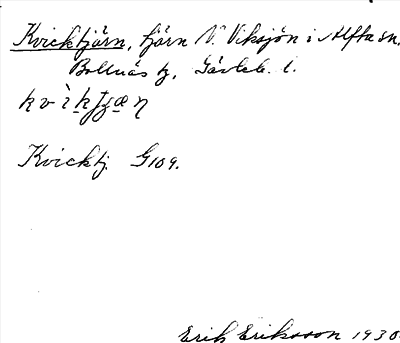 Kvicktjärn, tjärn V. Viksjön i Alfta sn,
Bollnäs tg, Gävleb. l.
Kvicktj. G109.
Erik Eriksson 1930.